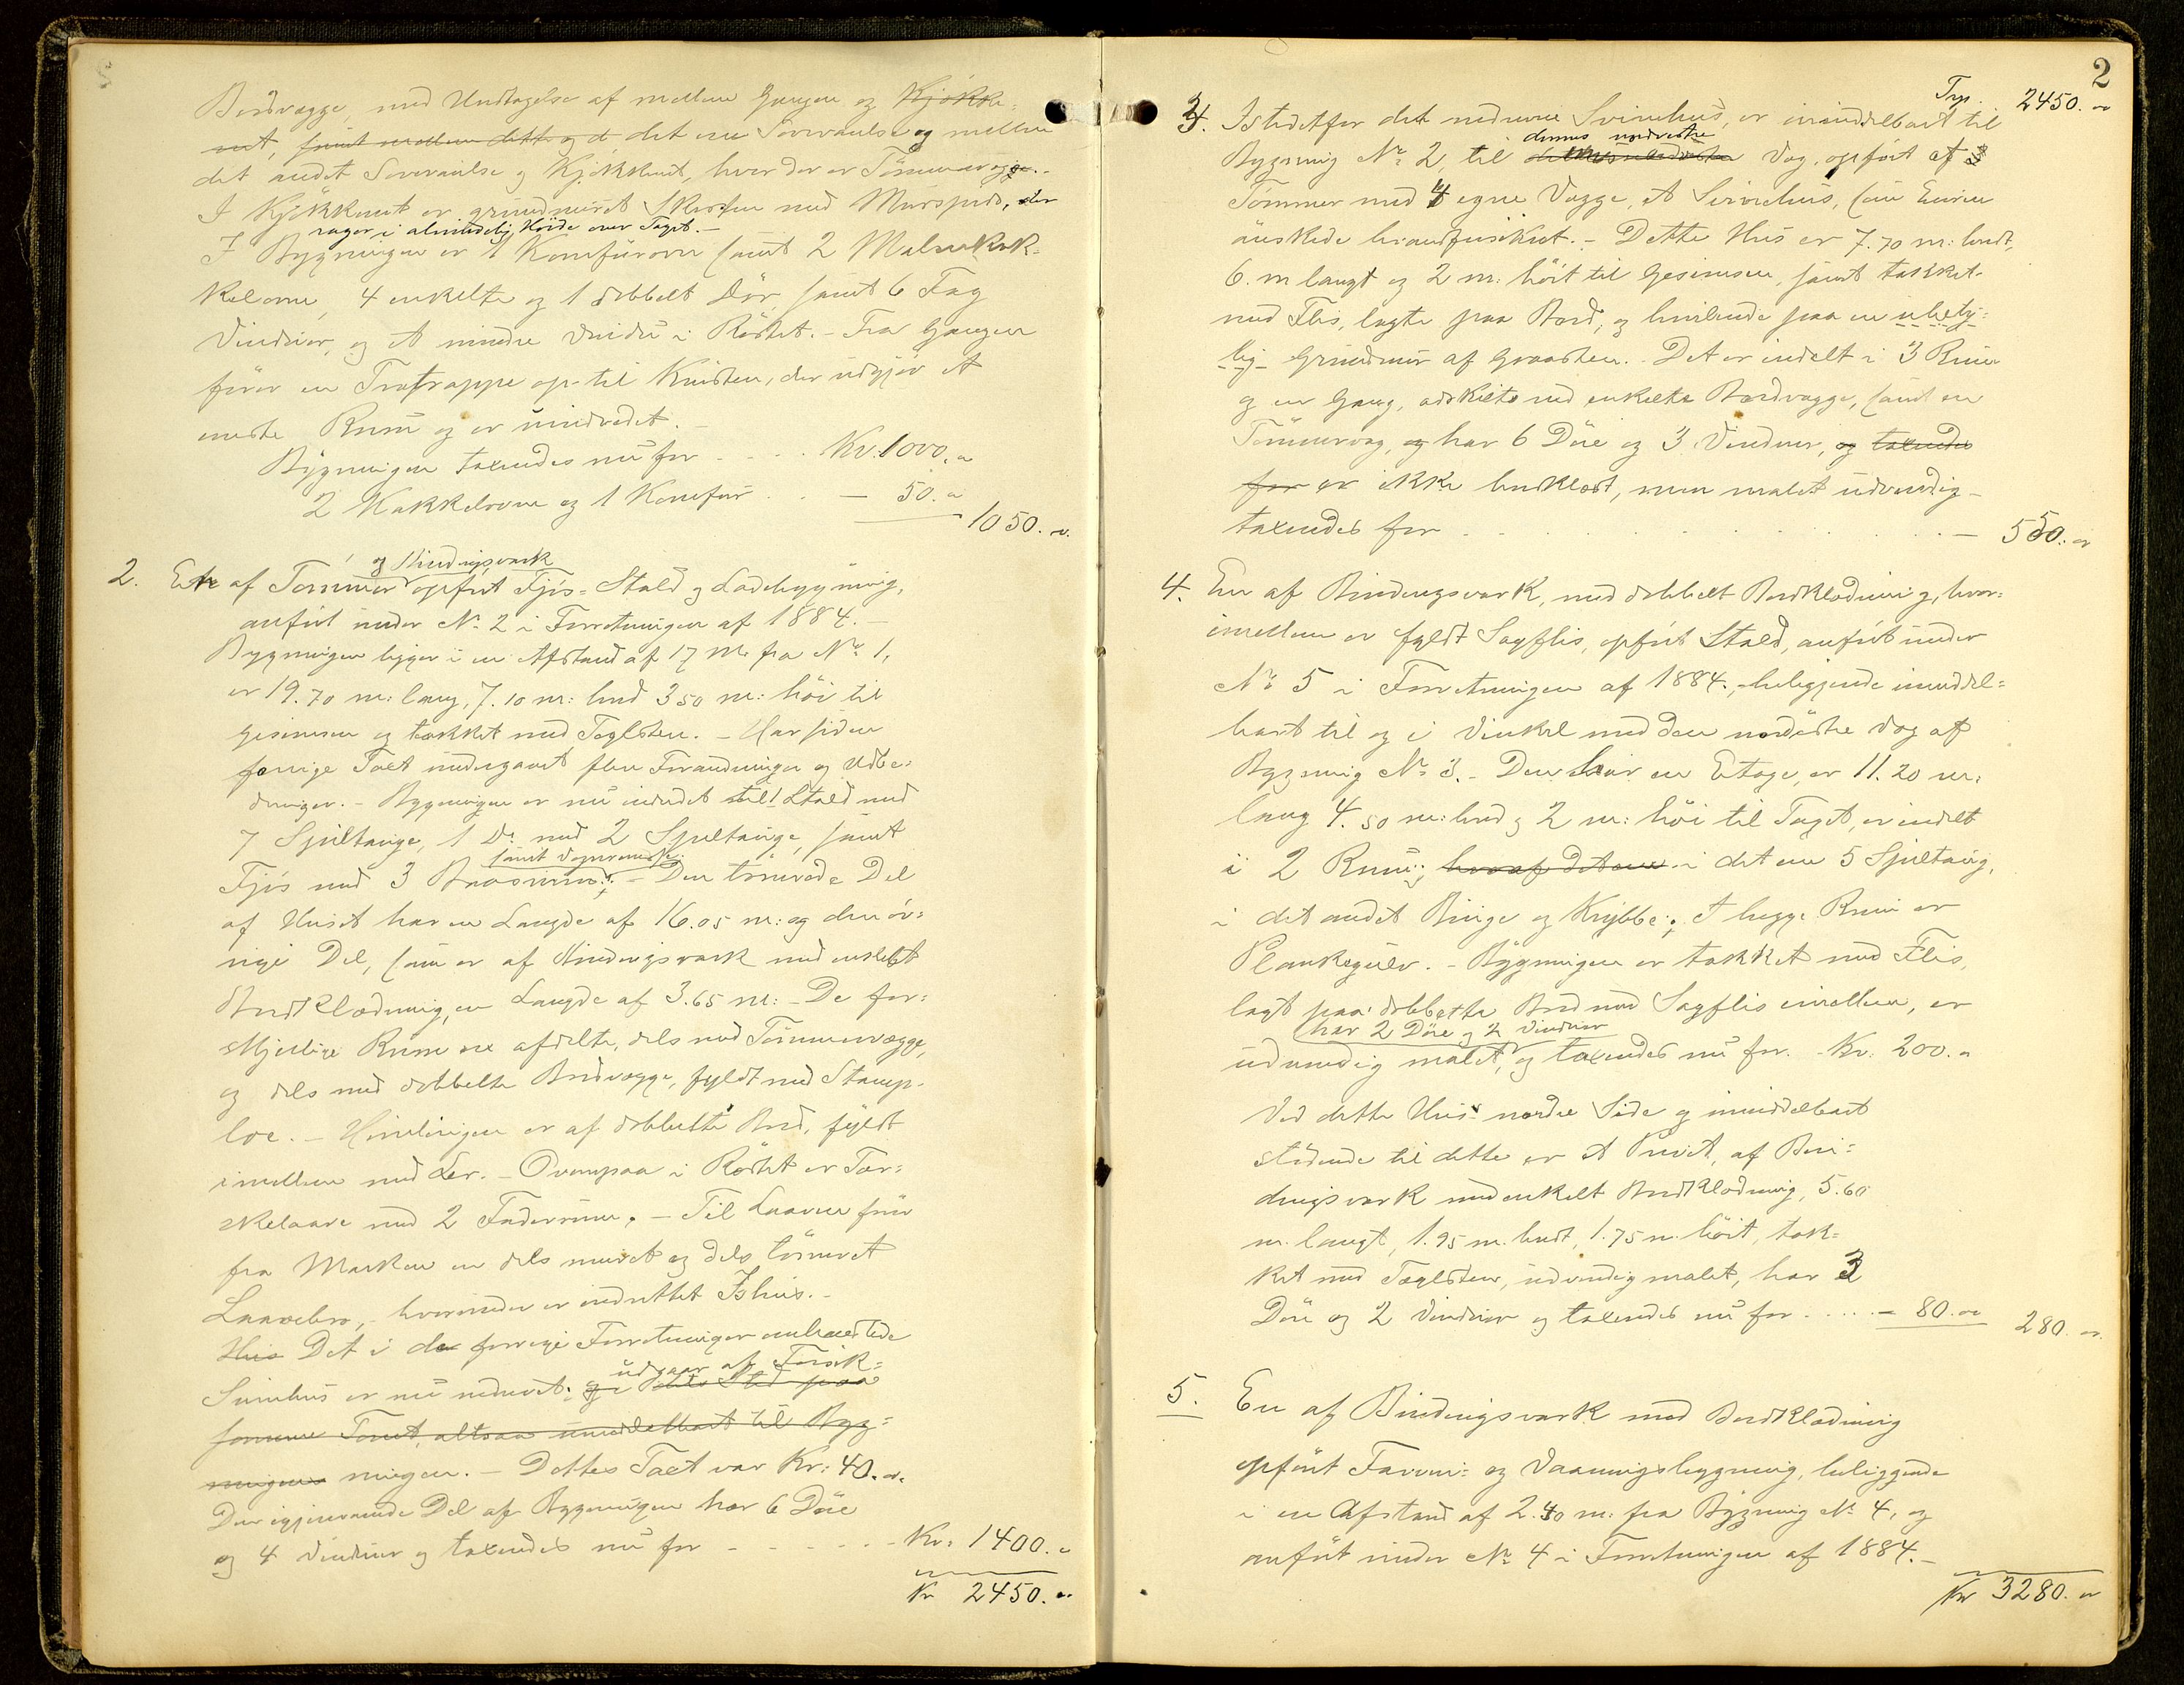 Bordvægge, med Undtagelse af mellem Gangen og Kjøkke-
net, samt mellem dette og d det ene Soveværelse og mellem
det andet Soveværelse og Kjøkkenet, hvor der er Tømmervægge.-
I Kjøkkenet er grundmuret Skorsten med Murspids, der
rager i almindelig Høide over Taget.-
I Bygningen er 1 Komfurovn samt 2 Kak-
kelovne, 4 enkelte og 1 dobbelt Dør, samt 6 Fag
Vinduer, og et mindre Vindu i Røstet.- Fra Gangen
fører en Trætrappe op til Kvisten, der udgjør et
eneste Rum og er uindredet.-
Bygningen taxeredes nu for - - - - Kr. 1000.
2 Kakkelovne og 1 Komfur . . - 50.
1050.
2. En af Tømmer og Bindingsværk opført Fjøs- Stald og Ladebygning,
anført under No 2 i Forretningen af 1884.-
Bygningen ligger i en Afstand af 17 M. fra No 1,
er 19.70 m: lang, 7.10 m: bred 3.50 m: høi til
Gesimsen og tækket med Taglsten. - Har siden
forrige Taxt undergaaet flere Forandringer og Udbe-
dringer. - Bygningen er nu indredet til 1 Stald med
7 Spiltauge, 1 Do med 2 Spiltauge, samt
Fjøs med 3 Baasrum, samt Vognremisse. - Den tømrede Del
af Huset har en Længde af 16.05 m: og den øv-
rige Del, som er af Bindingsværk med enkelt
Bordklædning, en Længde af 3.65 M: - De for-
skjellige Rum ere afdelte, dels med Tømmervægge,
og dels med dobbelte Bordvægge, fyldt med Stamp-
loe. - Himlingen er af dobbelte Bord, fyldt
imellem med Ler. - Ovenpaa i Røstet er Tør-
kelaave med 2 Foderrum. - Til Laaven fører
fra Marken en dels muret og dels tømret
Laavebro, hvorunder er indrettet Ishus.-
Hus Det i den forrige Forretninger omhandlede
Svinehus er nu nedrevet; og i dets Sted paa udgaar af Forsik-
samme Tomt, altsaa umiddelbart til Byg-
ningens ningen. - Dettes Taxt var Kr: 40.
Den igjenværende Del af Bygningen har 6 Døre
og 4 Vinduer og taxeredes nu for - - - - - Kr. 1400.
Kr 2450.
2
Trp. 2450.
3. Istedetfor det nedrevne Svinehus, er umiddelbart til
Bygning No 2, til dennes nordvestre Væg, opført af
Tømmer med 4 egne Vægge, et Svinehus, som Eieren
ønskede brandforsikret. - Dette Hus er 7.70 m: bredt,
6. m langt og 2 m: høit til Gesimsen, samt tækket
med Flis, lagte paa Bord, og hvilende paa en ubety-
lig Grundmur af Graasten. - Det er indelt i 3 Rum
og en Gang, adskilte ved enkelte Bordvægge, samt en
Tømmervæg, og har 6 Døre og 3 Vinduer, og taxeredes
for er ikke bordklædt, men malet udvendig -
taxeredes for - - - - - 550.
4. En af Bindingsværk, med dobbelt Bordklædning, hvor-
imellem er fyldt Sagflis, opført Stald, anført under
No 5 i Forretningen af 1884, - beliggende umiddel-
bart til og i Vinkel med den nordøstre Væg af
Bygning No 3. - Den har en Etage, er 11.20 m:
lang 4.50 m: bred og 2 m: høi til Taget, er indelt
i 2 Rum; hvoraf det ene i det ene 5 Spiltaug,
i det andet Binge og Krybbe; I begge Rum er
Plankegulv. - Bygningen er tækket med Flis,
lagt paa dobbelte Bord med Sagflis imellem, er
udvendig malet, har 2 Døre og 2 Vinduer og taxeredes nu for. - Kr. 200.
Ved dette Hus's nordre Side og umiddelbart
stødende til dette er et Privet, af Bin-
dingsværk med enkelt Bordklædning, 5.60
m. langt, 1.95 m. bredt, 1.75 m. høit, tæk-
ket med Taglsten, udvendig malet, har 3
Døre og 2 Vinduer og taxeredes nu for . . . . . - 80.
280.
5. En af Bindingsværk med Bordklædning
opført - og Vaaningsbygning, beliggende
i en Afstand af 2.40 m. fra Bygning No 4, og
anført under No 4 i Forretningen af 1884.-
Kr 3280.